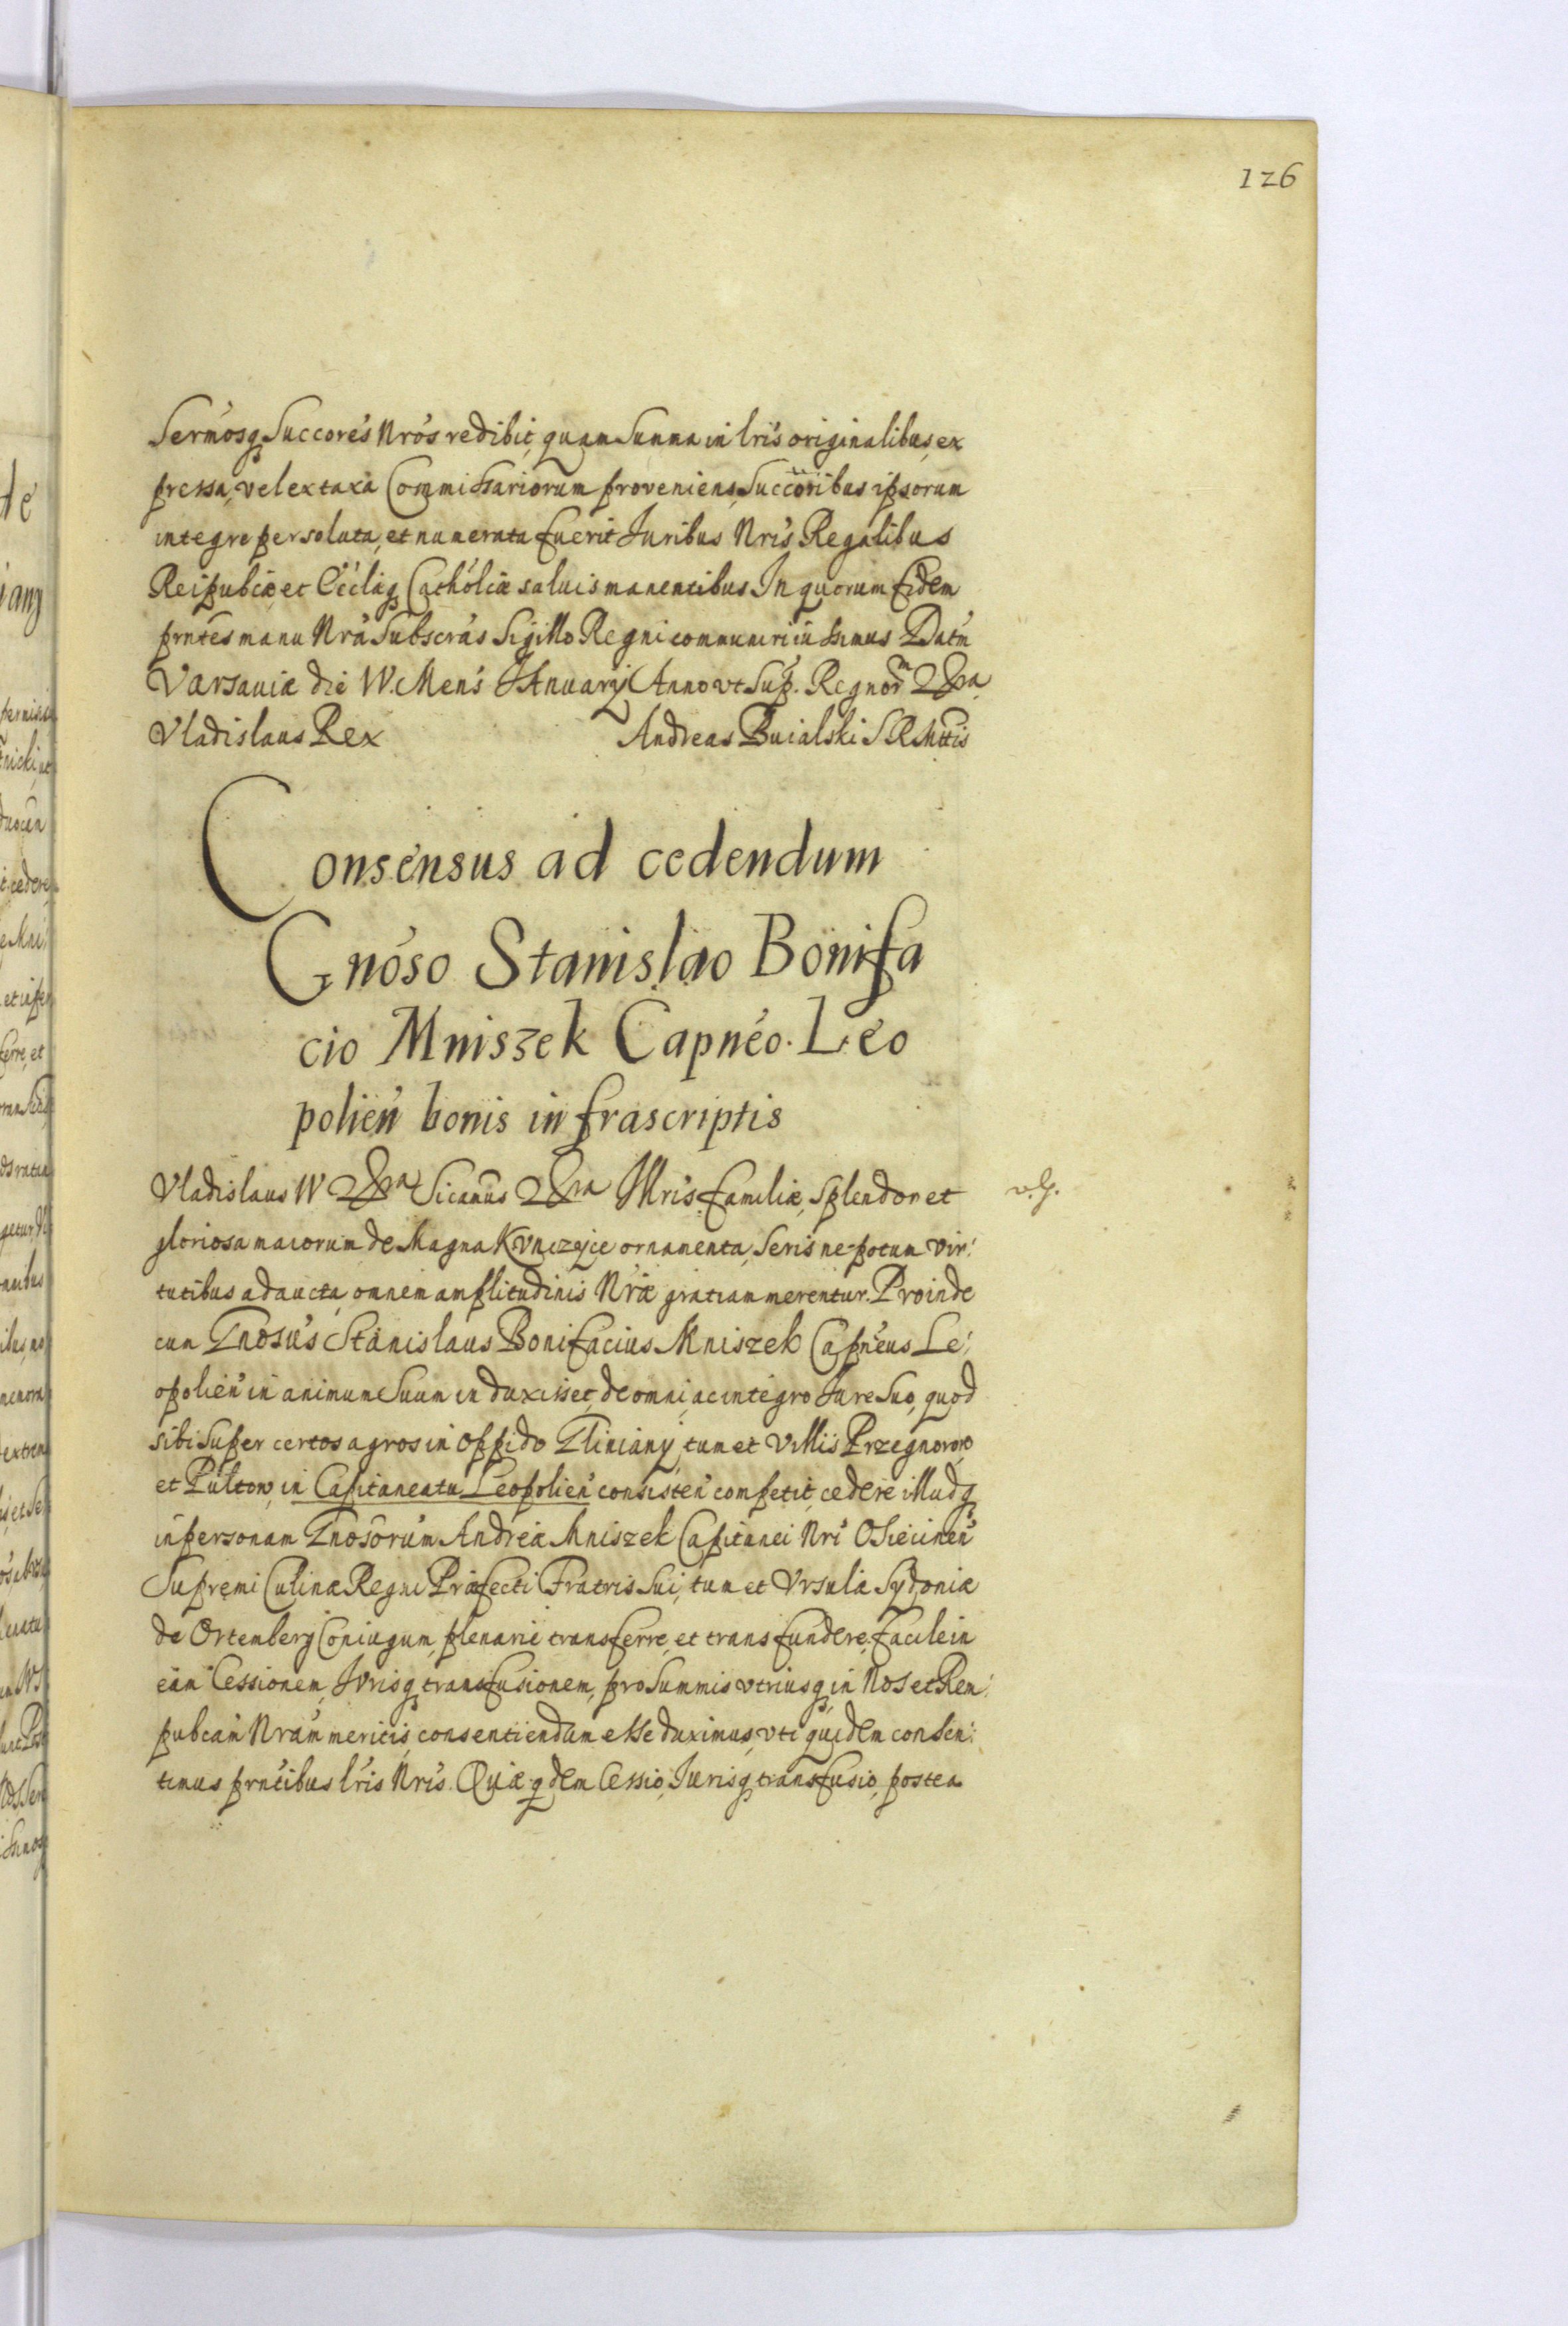 126
Sermosq Succores Nros redibit, quam Summa in lris originalibus, ex
pressa, vel ex taxa Commissariorum proveniens, Succoribus ipsorum
integre persoluta, et numerata fuerit Juribus Nris Regalibus
Reipubcæ et Ccclæq Cathólcæ saluis manentibus In quorum fidem
prntes manu Nra Subscras Sigillo Regni communiri iussimus Datu
Varsauiæ die IV. Mens JAnuarij Anno vt Sup. Regnor
Vladislaus Rex Andreas Buialski SRMttis
Consensus ad cedendum
Gnóso Stanislao Bonifa
cio Mniszek Capnéo. Leo
polień bonis infrascriptis
Vladislaus IV Sicanus Illris familiæ, Splendor et
gloriosa maiorum de Magna Kvnczyce ornamenta, Seris nepotum vir:
tutibus adaucta, omnem amplitudinis Nræ gratiam merentur. Proinde
cum Gnosus Stanislaus Bonifacius Mniszek Capneus Le:
opolień in animum Suum induxisset, de omni, ac integro Jure Suo, quod
sibi Super certos agros in oppido Gliniany, tum et Villis Przegnoiow
et Pultow, in Capitaneatu Leopolień consisteń competit, cedere illudq
in personam Gnosorum Andreæ Mniszek Capitanei Nri Osiecineń
Supremi Culinæ Regni Præfecti Fratris Sui, tum et Vrsulæ Sydoniæ
de Ortenberg Coniugum, plenarie transferre, et transfundere, facile in
eam Cessionem, Jurisq transfusionem, pro Summis vtriusq in Nos et Rem:
pubcam Nram meritis, consentiendum esse duximus, vti quidem consen:
timus prntibus lris Nris. Quæ qdem Cessio, Jurisq transfusio, postea